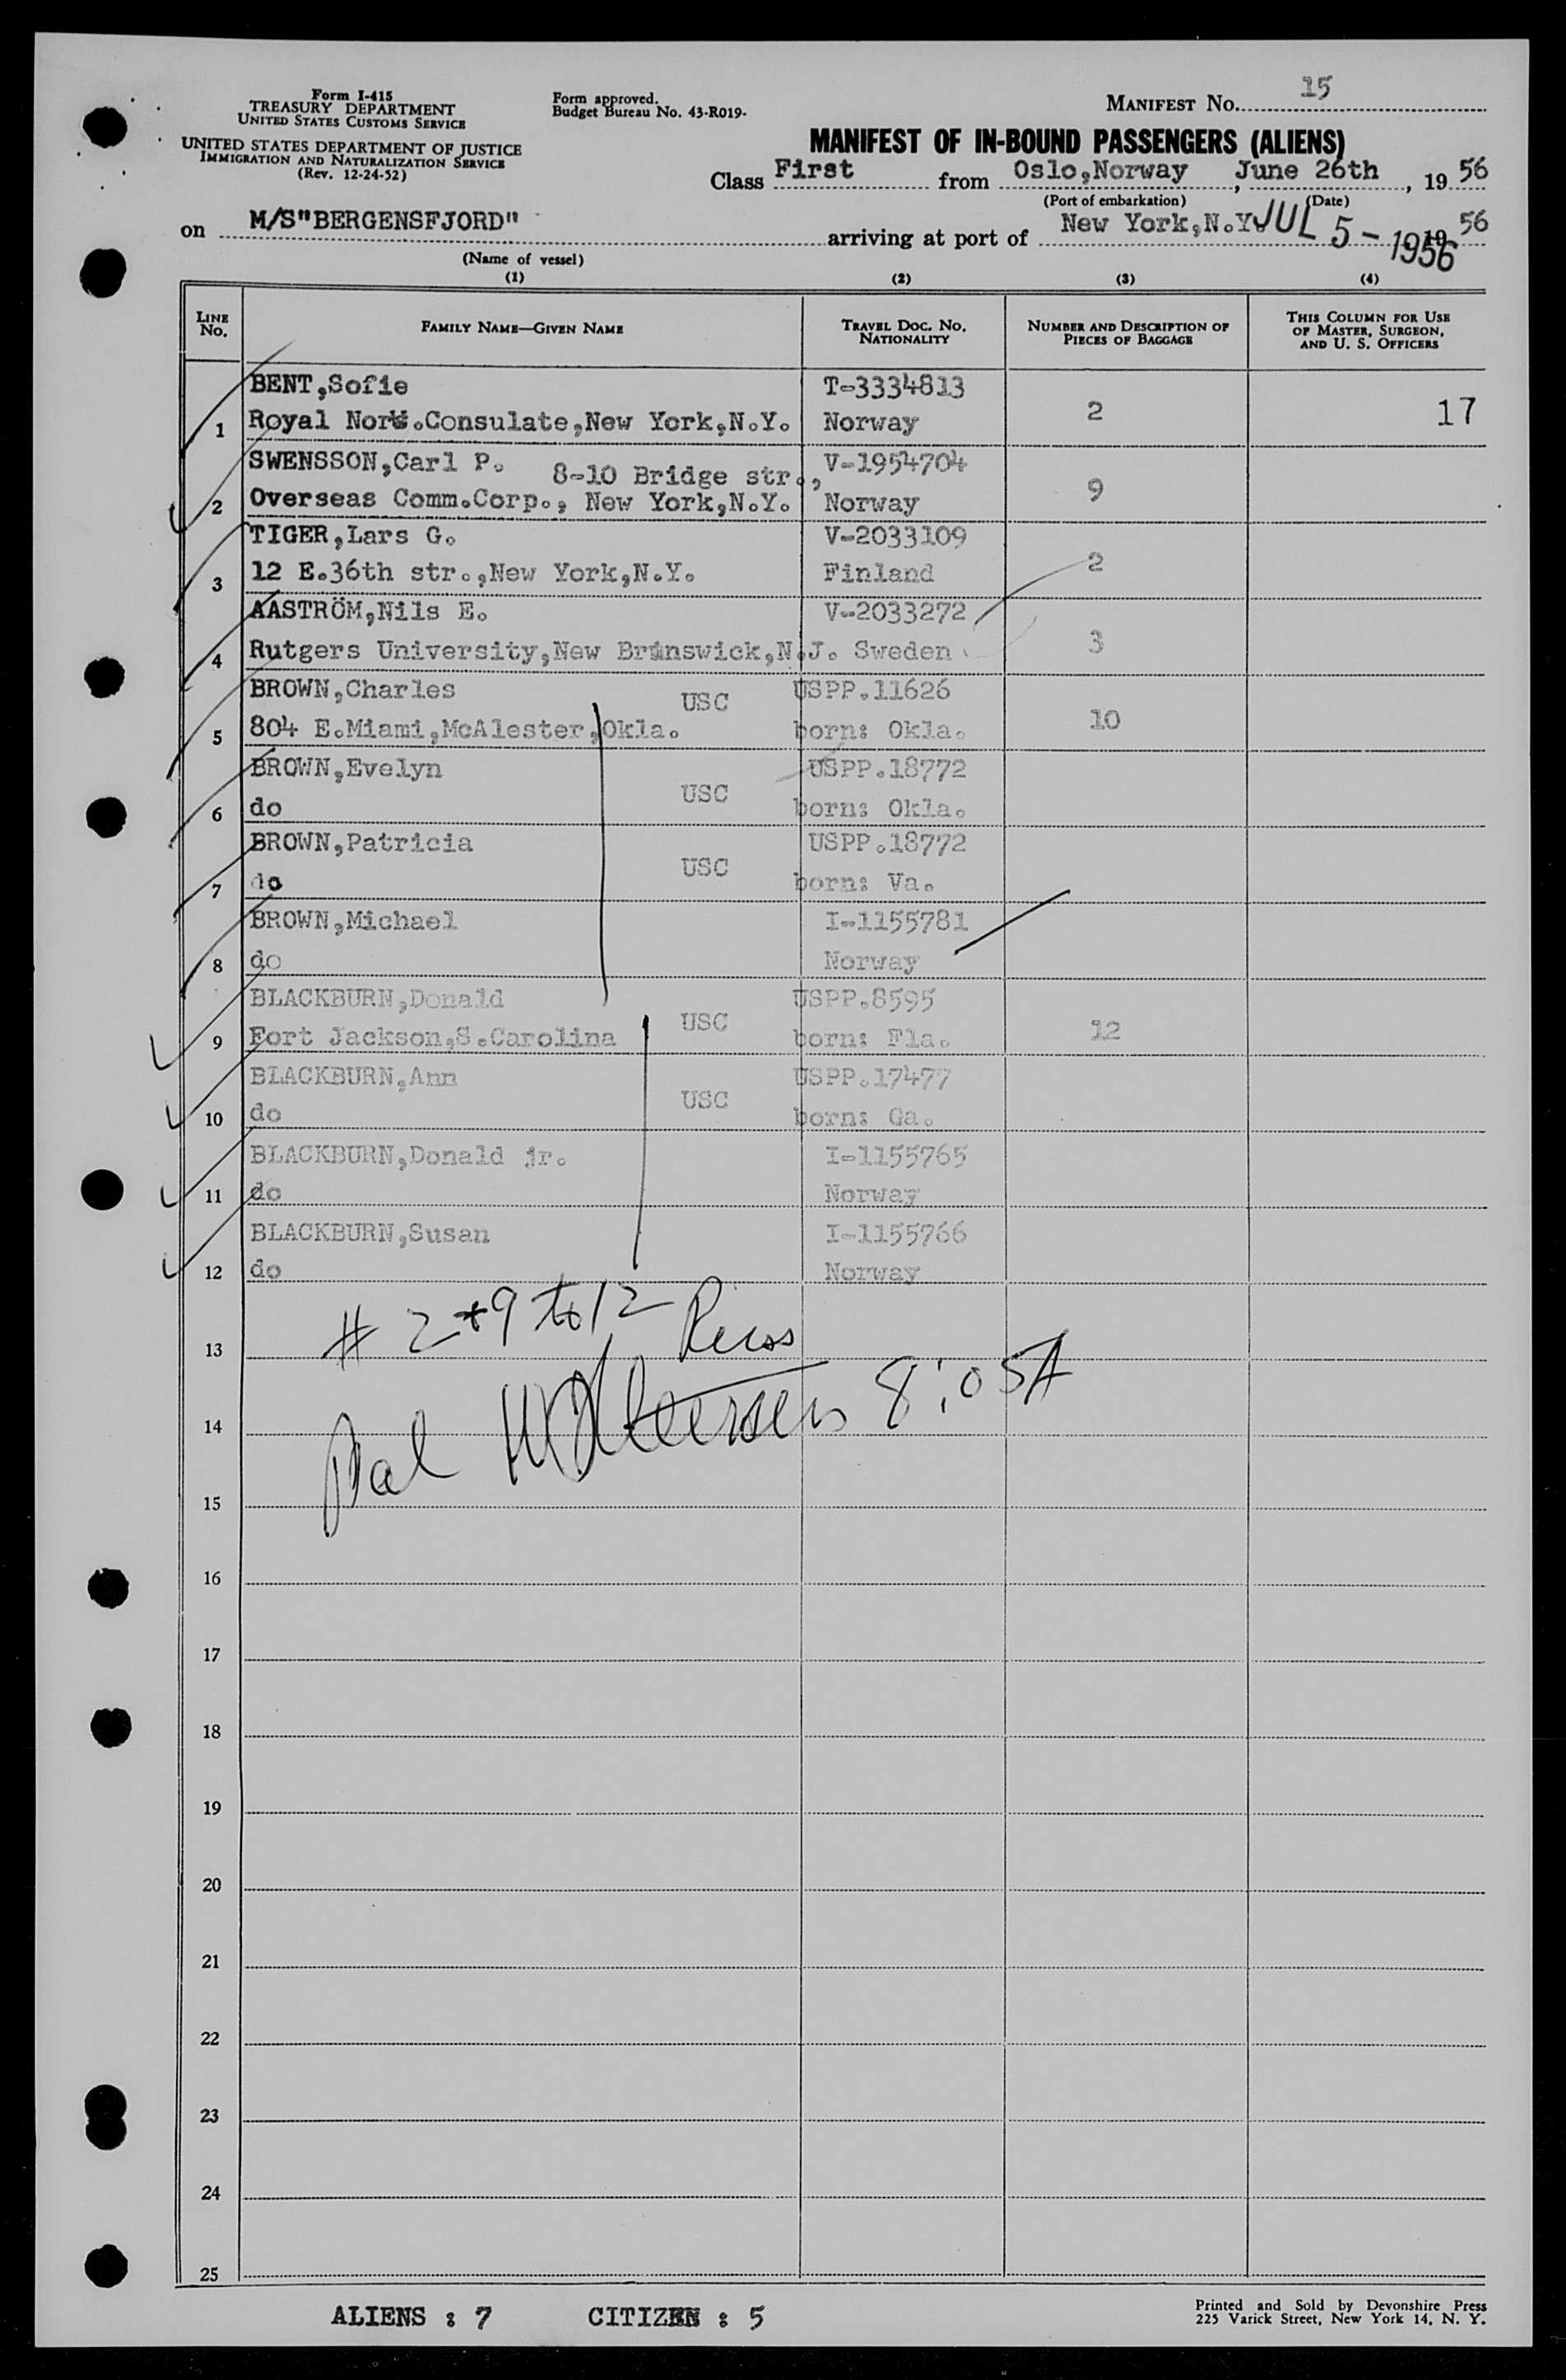 Form I-415
TREASURY DEPARTMENT
UNITED STATES CUSTOMS SERVICE
UNITED STATES DEPARTMENT OF JUSTICE
IMMIGRATION AND NATURALIZATION SERVICE
(Rev. 12-24-52)
Form approved.
Budget Bureau No. 43-R019.
MANIFEST No. 15
MANIFEST OF IN-BOUND PASSENGERS (ALIENS)
Class First from Oslo,Norway, June 26th, 19 56
(Port of embarkation) (Date)
on M/S"BERGENSFJORD" arriving at port of New York,N.Y. JUL 5 - 1956 19 56
(Name of vessel)
(1) (2) (3) (4)
LINE No. FAMILY NAME—GIVEN NAME TRAVEL DOC. NO. NATIONALITY NUMBER AND DESCRIPTION OF PIECES OF BAGGAGE THIS COLUMN FOR USE OF MASTER, SURGEON, AND U. S. OFFICERS
BENT,Sofie T-3334813
1 Royal Norw.Consulate,New York,N.Y. Norway 2 17
SWENSSON,Carl P. 8-10 Bridge str., V-1954704
2 Overseas Comm.Corp., New York,N.Y. Norway 9
TIGER,Lars G. V-2033109
3 12 E.36th str.,New York,N.Y. Finland 2
AASTRÖM,Nils E. V-2033272
4 Rutgers University,New Brunswick,N.J. Sweden 3
BROWN,Charles USC USPP.11626
5 804 E.Miami,McAlester,Okla. born: Okla. 10
BROWN,Evelyn USC USPP.18772
6 do born: Okla.
BROWN,Patricia USC USPP.18772
7 do born: Va.
BROWN,Michael I-1155781
8 do Norway
BLACKBURN,Donald USC USPP.8595
9 Fort Jackson,S.Carolina born: Fla. 12
BLACKBURN,Ann USC USPP.17477
10 do born: Ga.
BLACKBURN,Donald jr. I-1155765
11 do Norway
BLACKBURN,Susan I-1155766
12 do Norway
# 2 + 9 to 12
13
8:05A
14
15
16
17
18
19
20
21
22
23
24
25
ALIENS : 7 CITIZEN : 5
Printed and Sold by Devonshire Press
225 Varick Street, New York 14, N. Y.